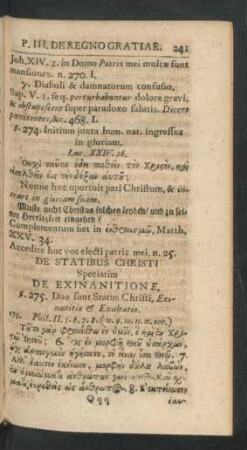 P. III. DE REGNO GRATIAE. 241
Joh. XIV. 2. in Domo Patris mei multæ sunt
mansiones. n. 270. I.
7. Diaboli & damnatorum confusio.
Sap. V. 1. seq. perturbabuntur dolore gravi,
& obstupescent super paradoxo salutis. Dicent
pœnitentes, &c. 468. I.
§. 274. Initium juxta hum. nat. ingressus
in gloriam.
Luc. XXIV. 26.
Οὐχὶ ταῦτα ἔδει παθεῖν τὸν Χριςὸν, καὶ
εἰσελθεῖν εἰς τὴν δόξαν αὑτοῦ;
Nonne hæc oportuit pati Christum, & in-
trare in gloriam suam.
Mußte nicht Christus solches leyden/ und zu sei-
ner Herrligkeit eingehen?
Complementum fiet in Matth.
XXV. 34.
Accedite huc vos electi patris mei. n. 25.
DE STATIBUS CHRISTI
Speciatim
DE EXINANITIONE.
§. 275. Duo sunt Status Christi, Exi-
nanitio & Exaltatio.
175. Phil. II. 5. 6. 7. 8. (v. 9. 10. 11. n.
Τοῦτο γὰρ φρονείσθω ἐν ὑμῖν, ὃ καὶ ἐν Χρι-
τῷ Ιησοῦ; 6. Ὃς ἐν μορφῇ Θεοῦ ὑπάρχων,
οὐχ ἁρπαγμὸν ἡγήσατο, τὸ εἶναι ἴσα Θεῷ. 7.
ἑαυτὸν ἐκένωσε, μορφὴν δούλου λαβὼν,
ἐν ὁμοιώματι ἀνθρώπων γενόμενος. Καὶ σχή-
ματι εὑρεθεὶς ὡς ἄνθρωπος. 8. Ἐταπείνωσεν
Qqq ἑαυ-